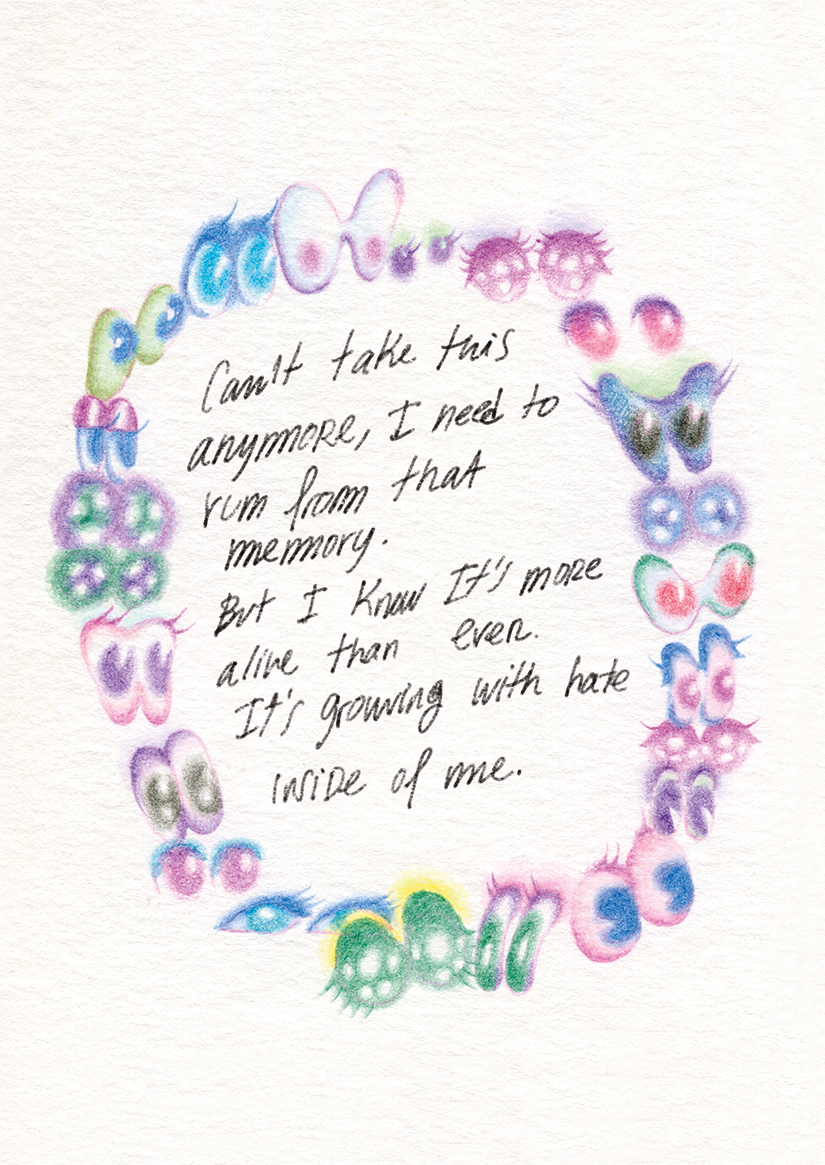 Can't take this
anymore, I need to
run from that
memory.
But I know It's more
alive than ever.
It's growing with hate
inside of me.